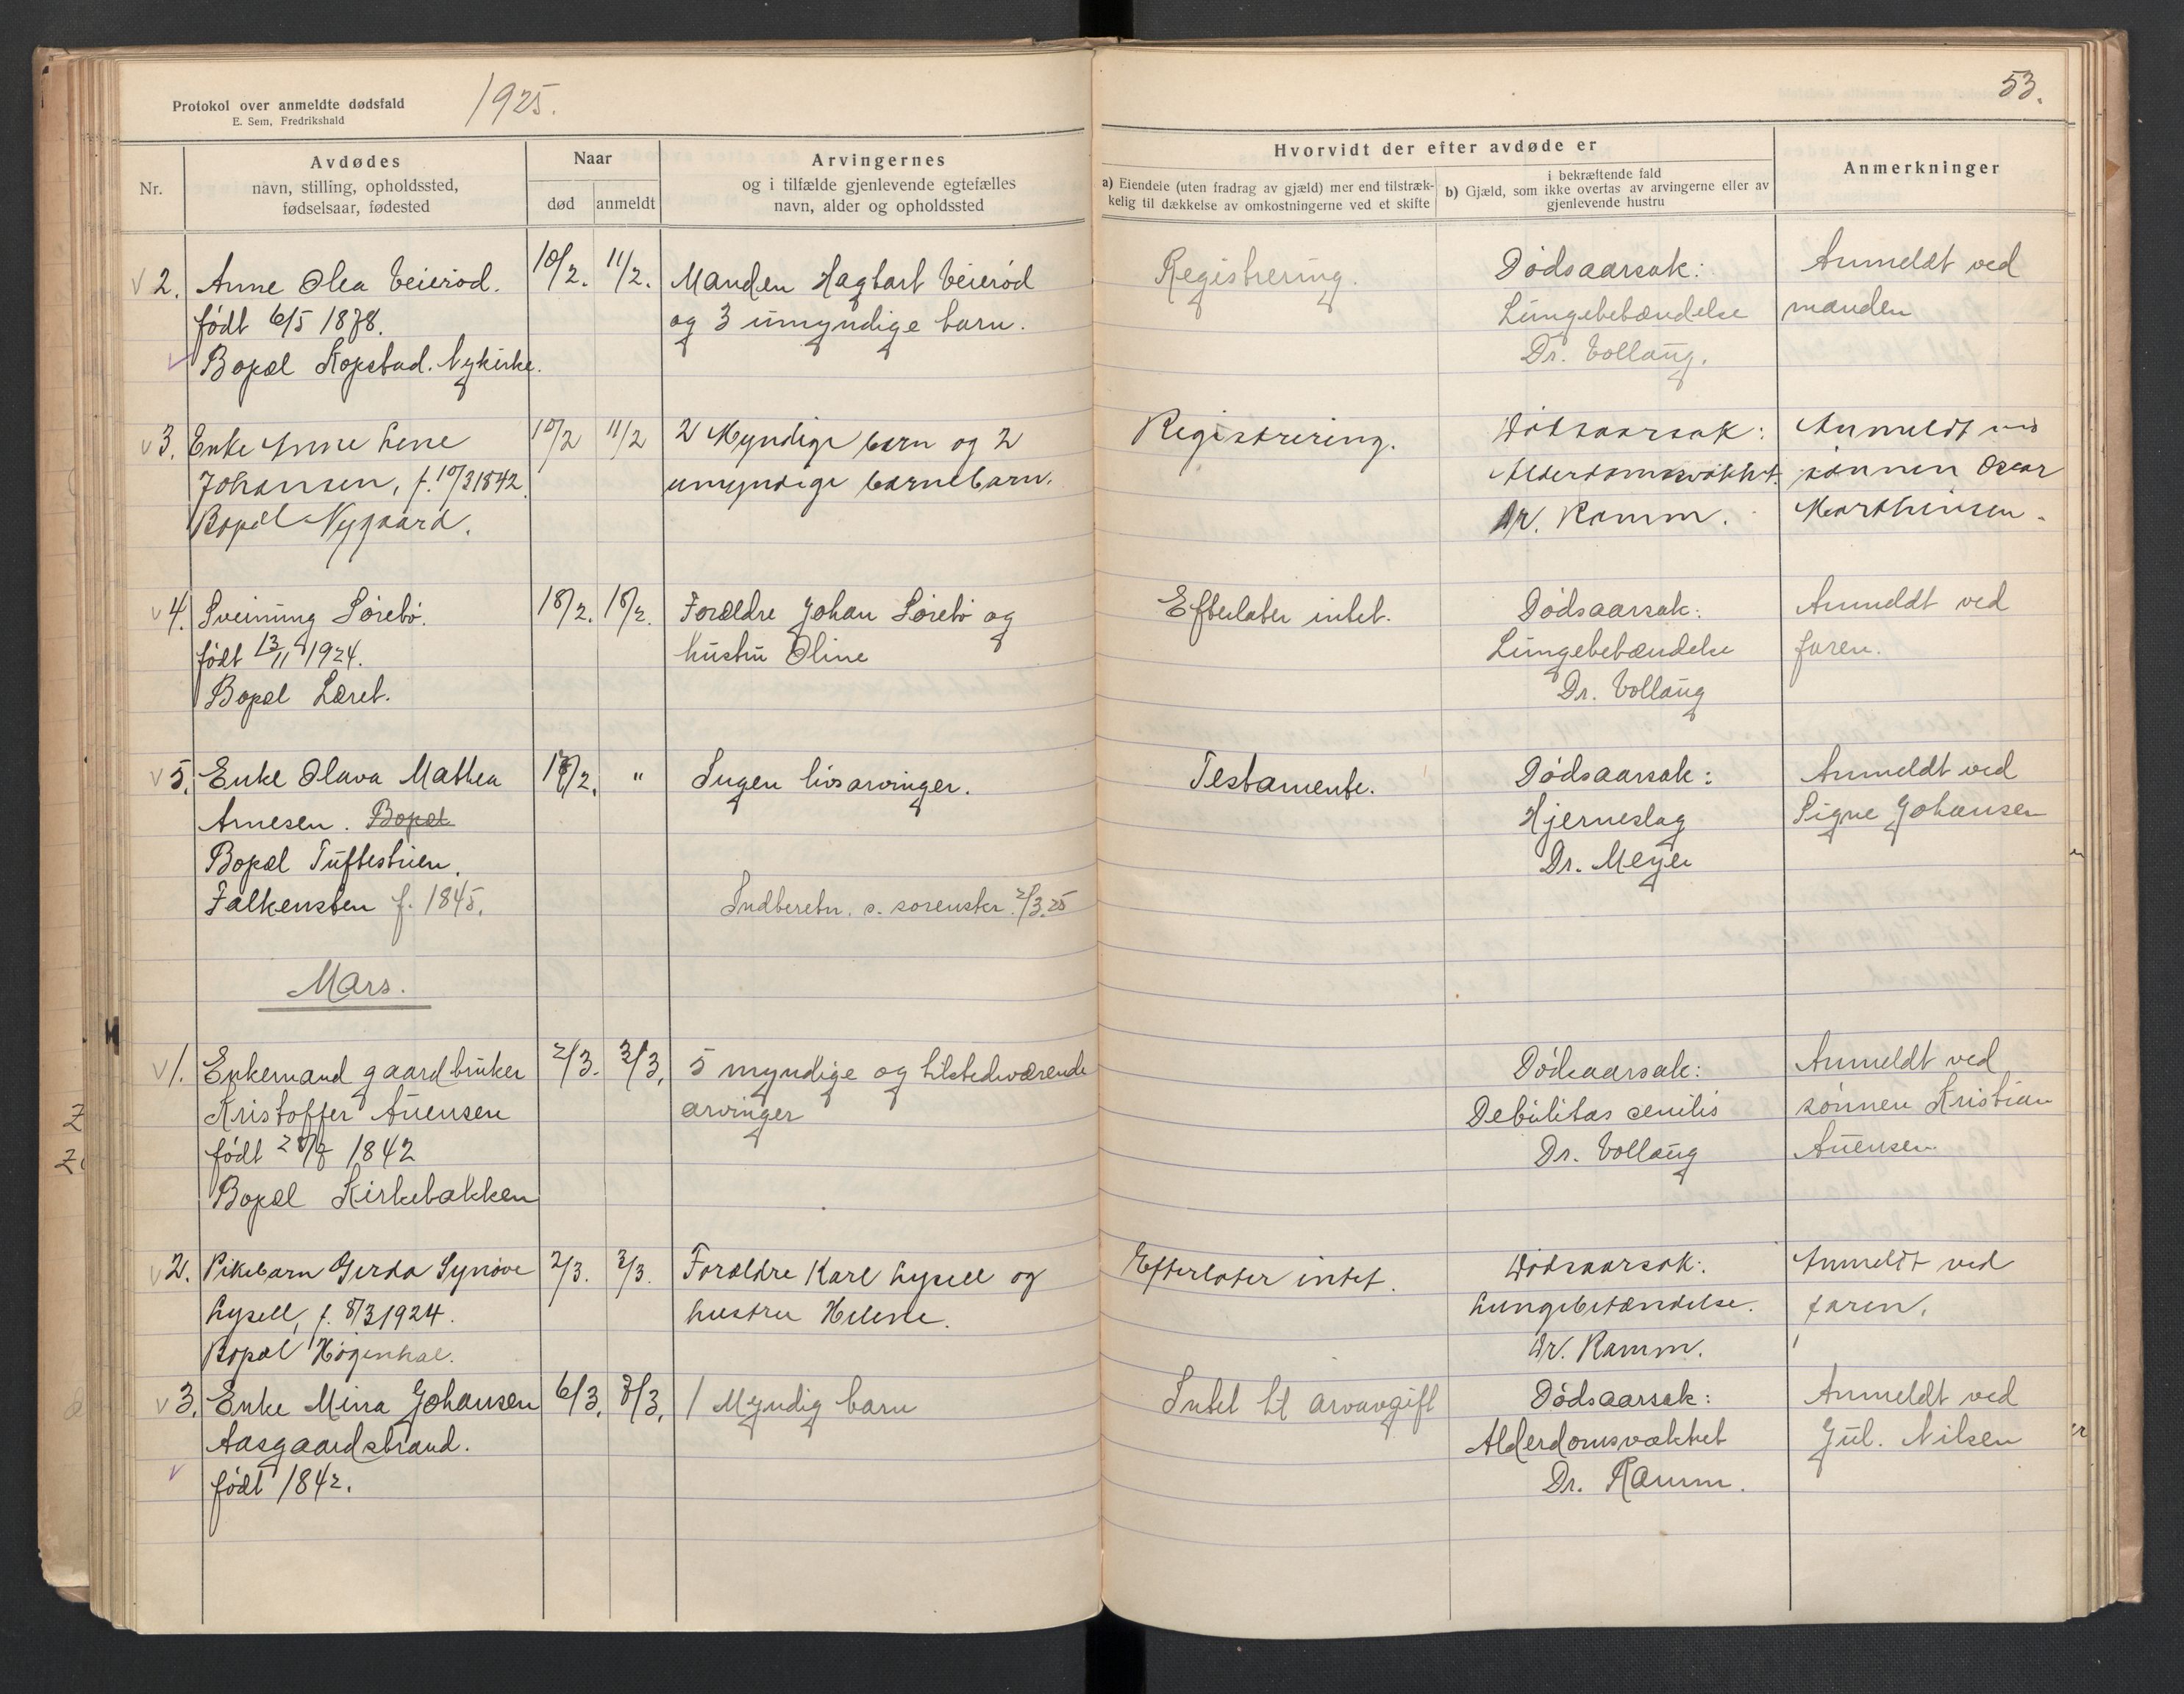 Protokol over anmeldte dødsfald
E. Sem, Fredrikshald
1925.
53.
Nr.
Avdødes
navn, stilling, opholdssted,
fødselsaar, fødested
Naar
død
anmeldt
Arvingernes
og i tilfælde gjenlevende egtefælles
navn, alder og opholdssted
Hvorvidt der efter avdøde er
a) Eiendele (uten fradrag av gjæld) mer end tilstræk-
kelig til dækkelse av omkostningerne ved et skifte
i bekræftende fald
b) Gjæld, som ikke overtas av arvingerne eller av
gjenlevende hustru
Anmerkninger
2. Anne Olea Veierød.
født 6/5 1878.
Bopæl Kopstad. Nykirke.
10/2. 11/2.
Manden Hagbart Veierød
og 3 umyndige barn.
Registrering.
Dødsaarsak:
Lungebetændelse
Dr. Vollaug.
Anmeldt ved
manden
3. Enke Anne Lene
Johansen, f. 10/3 1842.
Bopæl Nygaard.
10/2 11/2
2 Myndige barn og 2
umyndige barnebarn.
Registrering.
Dødsaarsak:
Alderdomsvækket.
Dr. Ramm.
Anmeldt ved
sønnen Oscar
Marthinsen.
4. Sveinung Sørebø.
født 13/11 1924.
Bopæl Læret.
18/2. 18/2.
Forældre Johan Sørebø og
hustru Oline
Efterlater intet.
Dødsaarsak:
Lungebetændelse
Dr. Vollaug
Anmeldt ved
faren.
5. Enke Olava Mathea
Arnesen. Bopæl
Bopæl Tuftestuen.
Falkensten f. 1845.
/2. "
Ingen livsarvinger.
Indberetn. s. sorenskr. 2/3.25
Testamente.
Dødsaarsak:
Hjerneslag
Dr. Meyer
Anmeldt ved
Signe Johansen
Mars.
1. Enkemand gaardbruker
Kristoffer Auensen
født 1842
Bopæl Kirkebakken
2/3. 3/3.
5 myndige og tilstedeværende
arvinger
Dødsaarsak:
Debilitas senilis
Dr. Vollaug
Anmeldt ved
sønnen Kristian
Auensen
2. Pikebarn Gerda Synøve
Lysell, f. 8/3 1924.
Bopæl Høgenhal.
2/3. 3/3.
Forældre Karl Lysell og
hustru Helene.
Efterlater intet.
Dødsaarsak:
Lungebetændelse.
Dr. Ramm.
Anmeldt ved
faren.
3. Enke Mina Johansen
Aasgaardstrand.
født 1842.
6/3. /3.
1 Myndig barn
Intet til arvavgift
Dødsaarsak:
Alderdomsvækket
Dr. Ramm.
Anmeldt ved
Gul. Nilsen